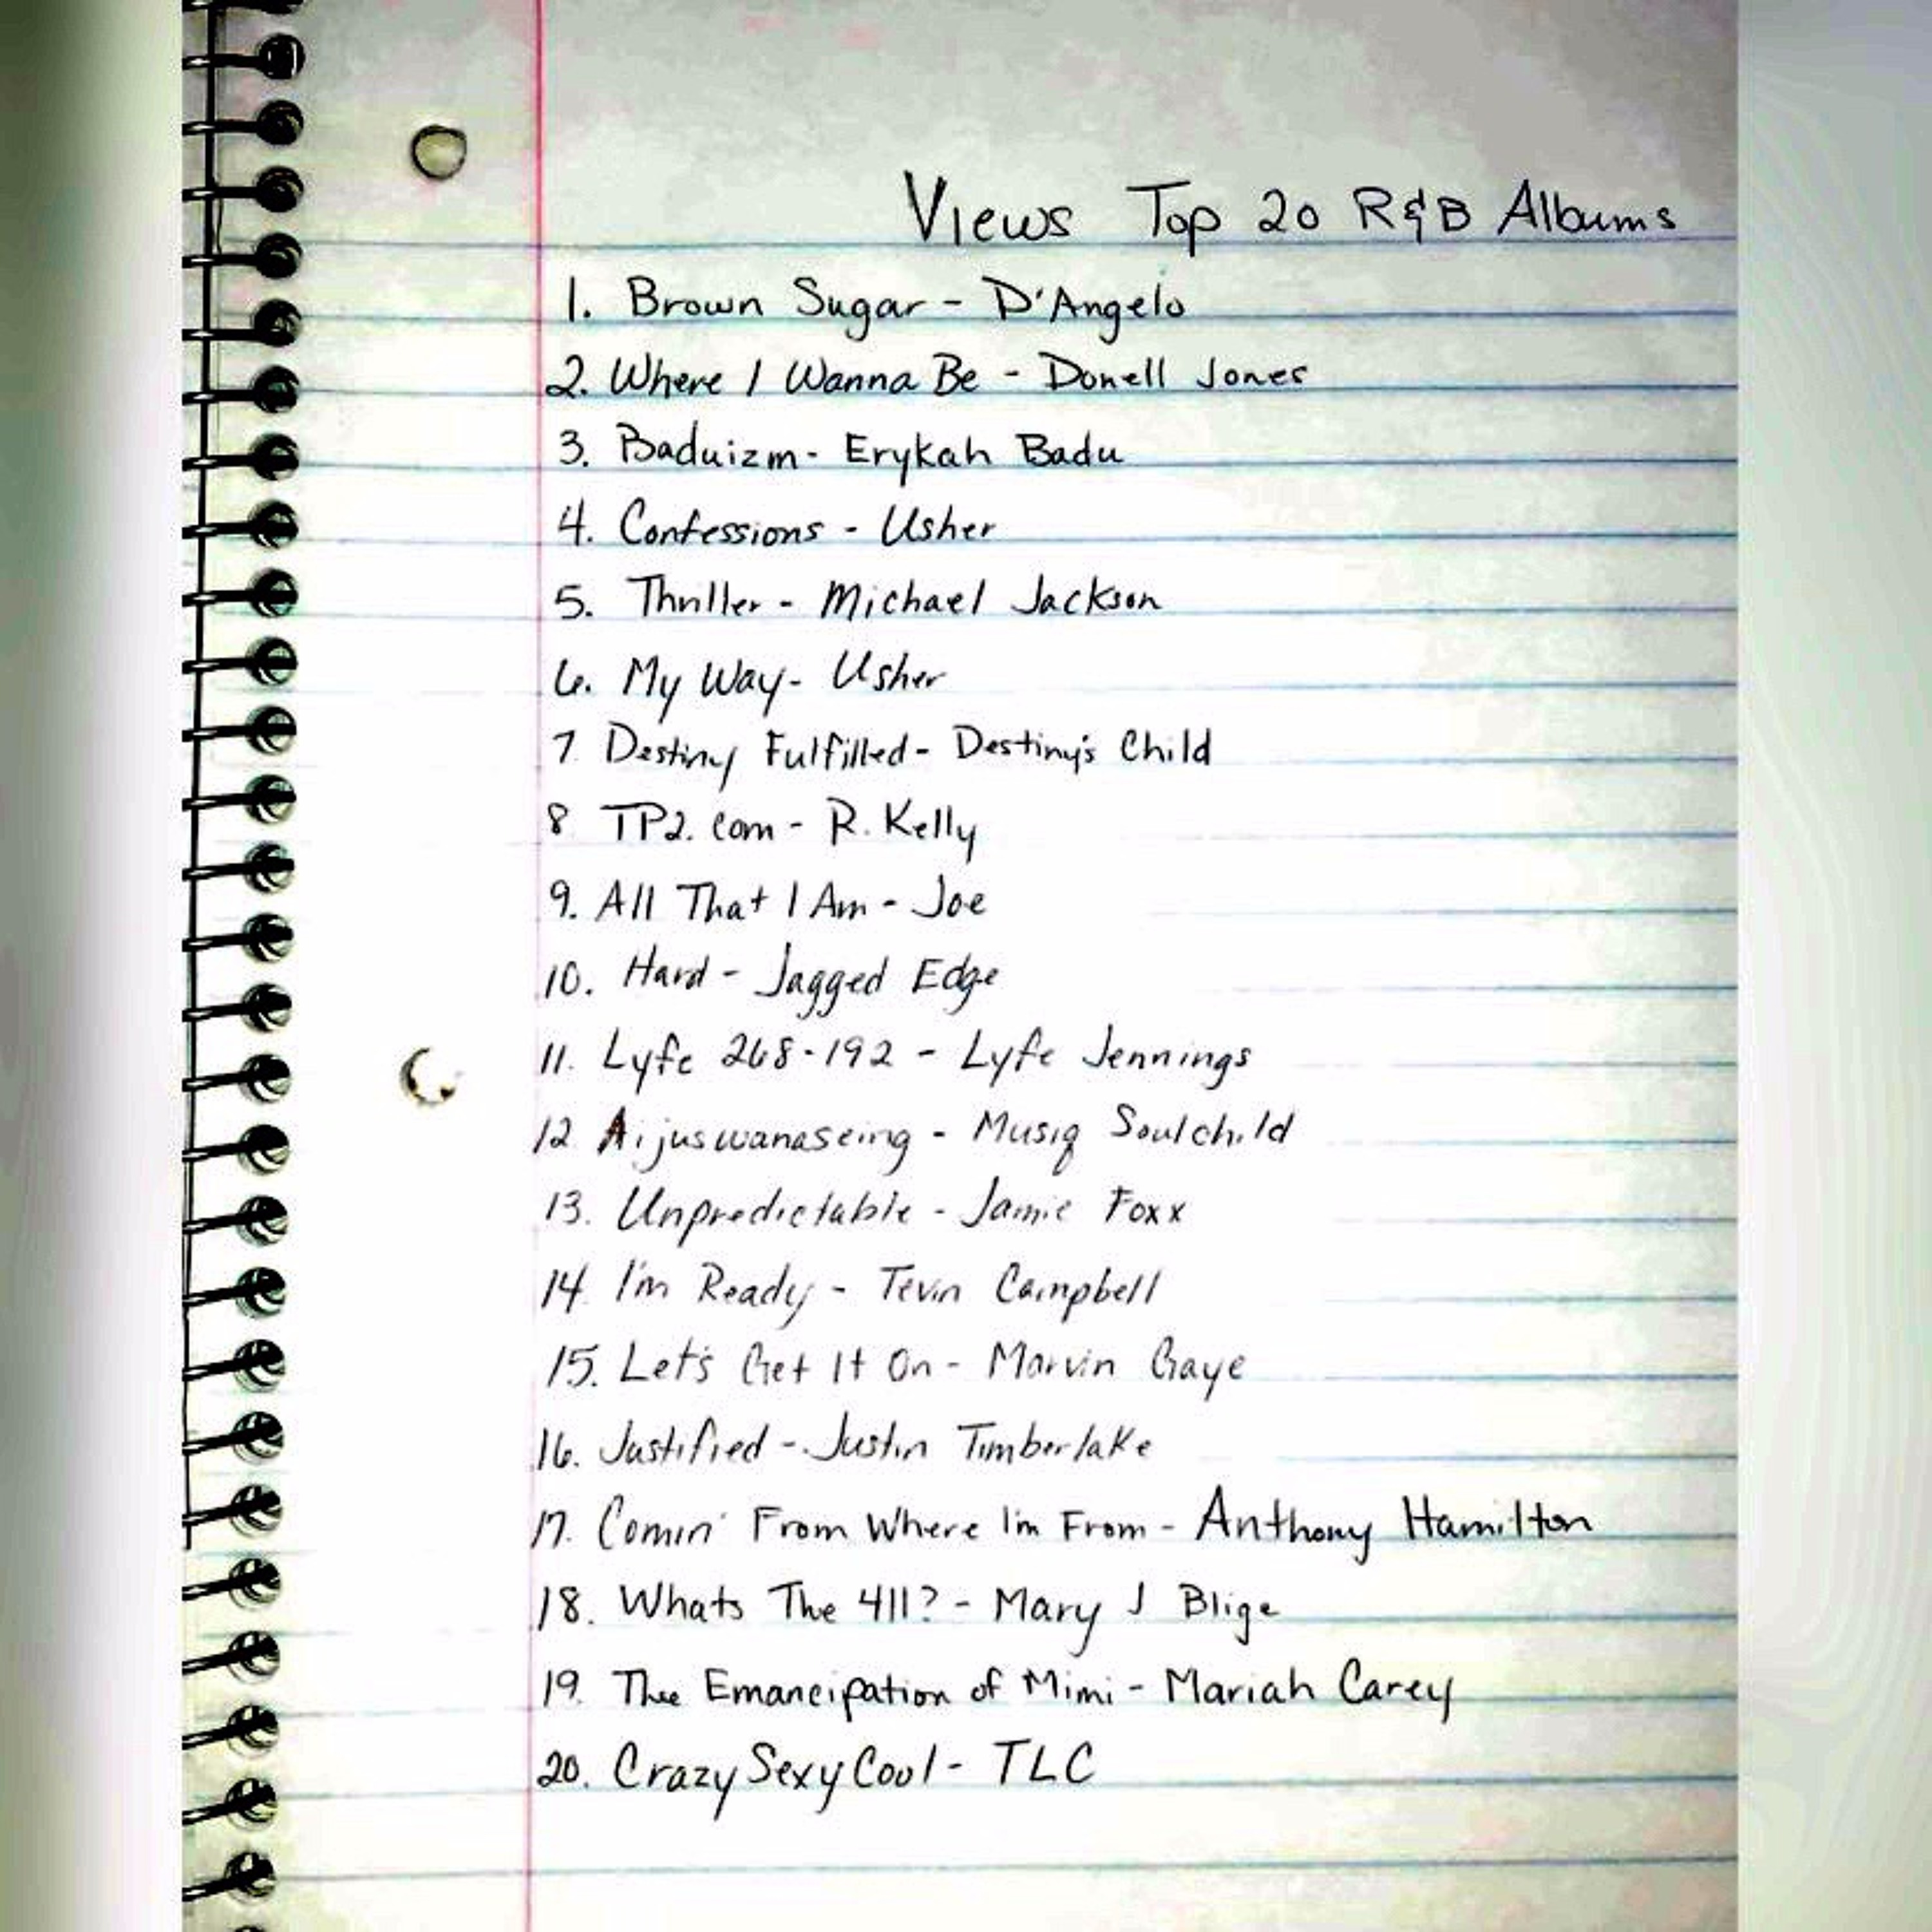 Views Top 20 R&B Albums
1. Brown Sugar - D'Angelo
2. Where I Wanna Be - Donell Jones
3. Baduizm - Erykah Badu
4. Confessions - Usher
5. Thriller - Michael Jackson
6. My Way - Usher
7 Destiny Fulfilled - Destiny's Child
8 TP2.com - R. Kelly
9. All That I Am - Joe
10. Hard - Jagged Edge
11. Lyfe 268-192 - Lyfe Jennings
12 Aijuswanaseing - Musiq Soulchild
13. Unpredictable - Jamie Foxx
14 I'm Ready - Tevin Campbell
15. Let's Get It On - Marvin Gaye
16. Justified - Justin Timberlake
17. Comin' From Where I'm From - Anthony Hamilton
18. Whats The 411? - Mary J Blige
19. The Emancipation of Mimi - Mariah Carey
20. CrazySexyCool - TLC